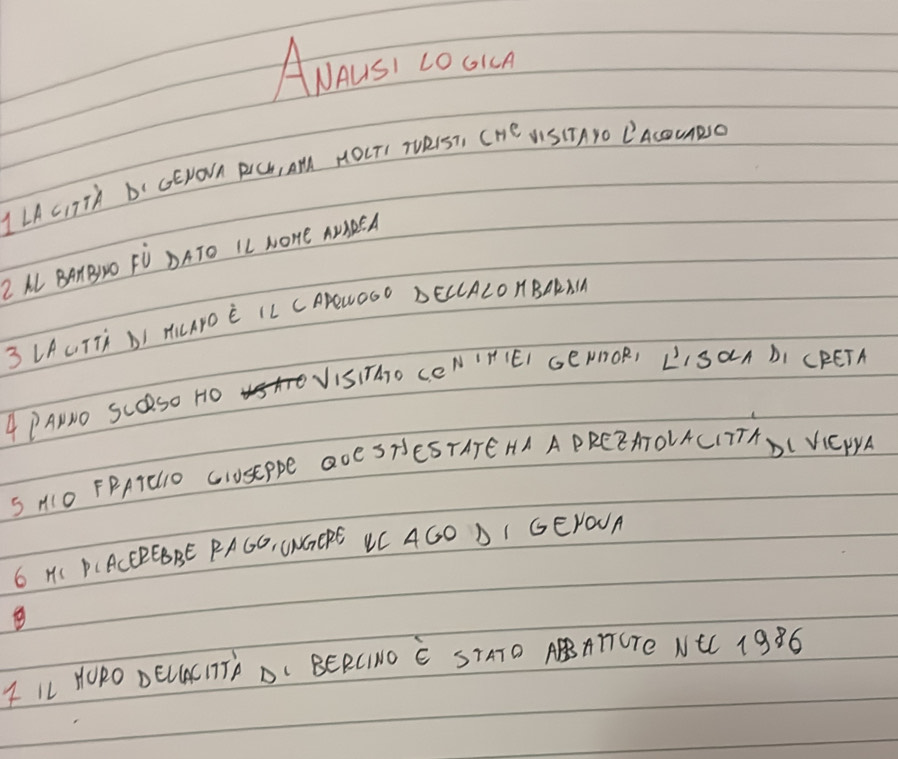 ANALISI LOGICA
1 LA CITTÀ DI GENOVA RICHIAMA MOLTI TURISTI CHE VISITANO L'ACQUARIO
2 AL BAMBINO FÙ DATO IL NOME ANDREA
3 LA CITTÀ DI MILANO È IL CAPOLUOGO DELLA LOMBARDIA
4 L'ANNO SCORSO HO VISITATO CON I MIEI GENITORI L'ISOLA DI CRETA
5 MIO FRATELLO GIUSEPPE QUEST'ESTATE HA APREZATO LA CITTÀ DI VIENNA
6 MI PIACEREBBE RAGGIUNGERE IL LAGO DI GENOVA
7 IL MURO DELLA CITTÀ DI BERLINO È STATO ABBATTUTO NEL 1986